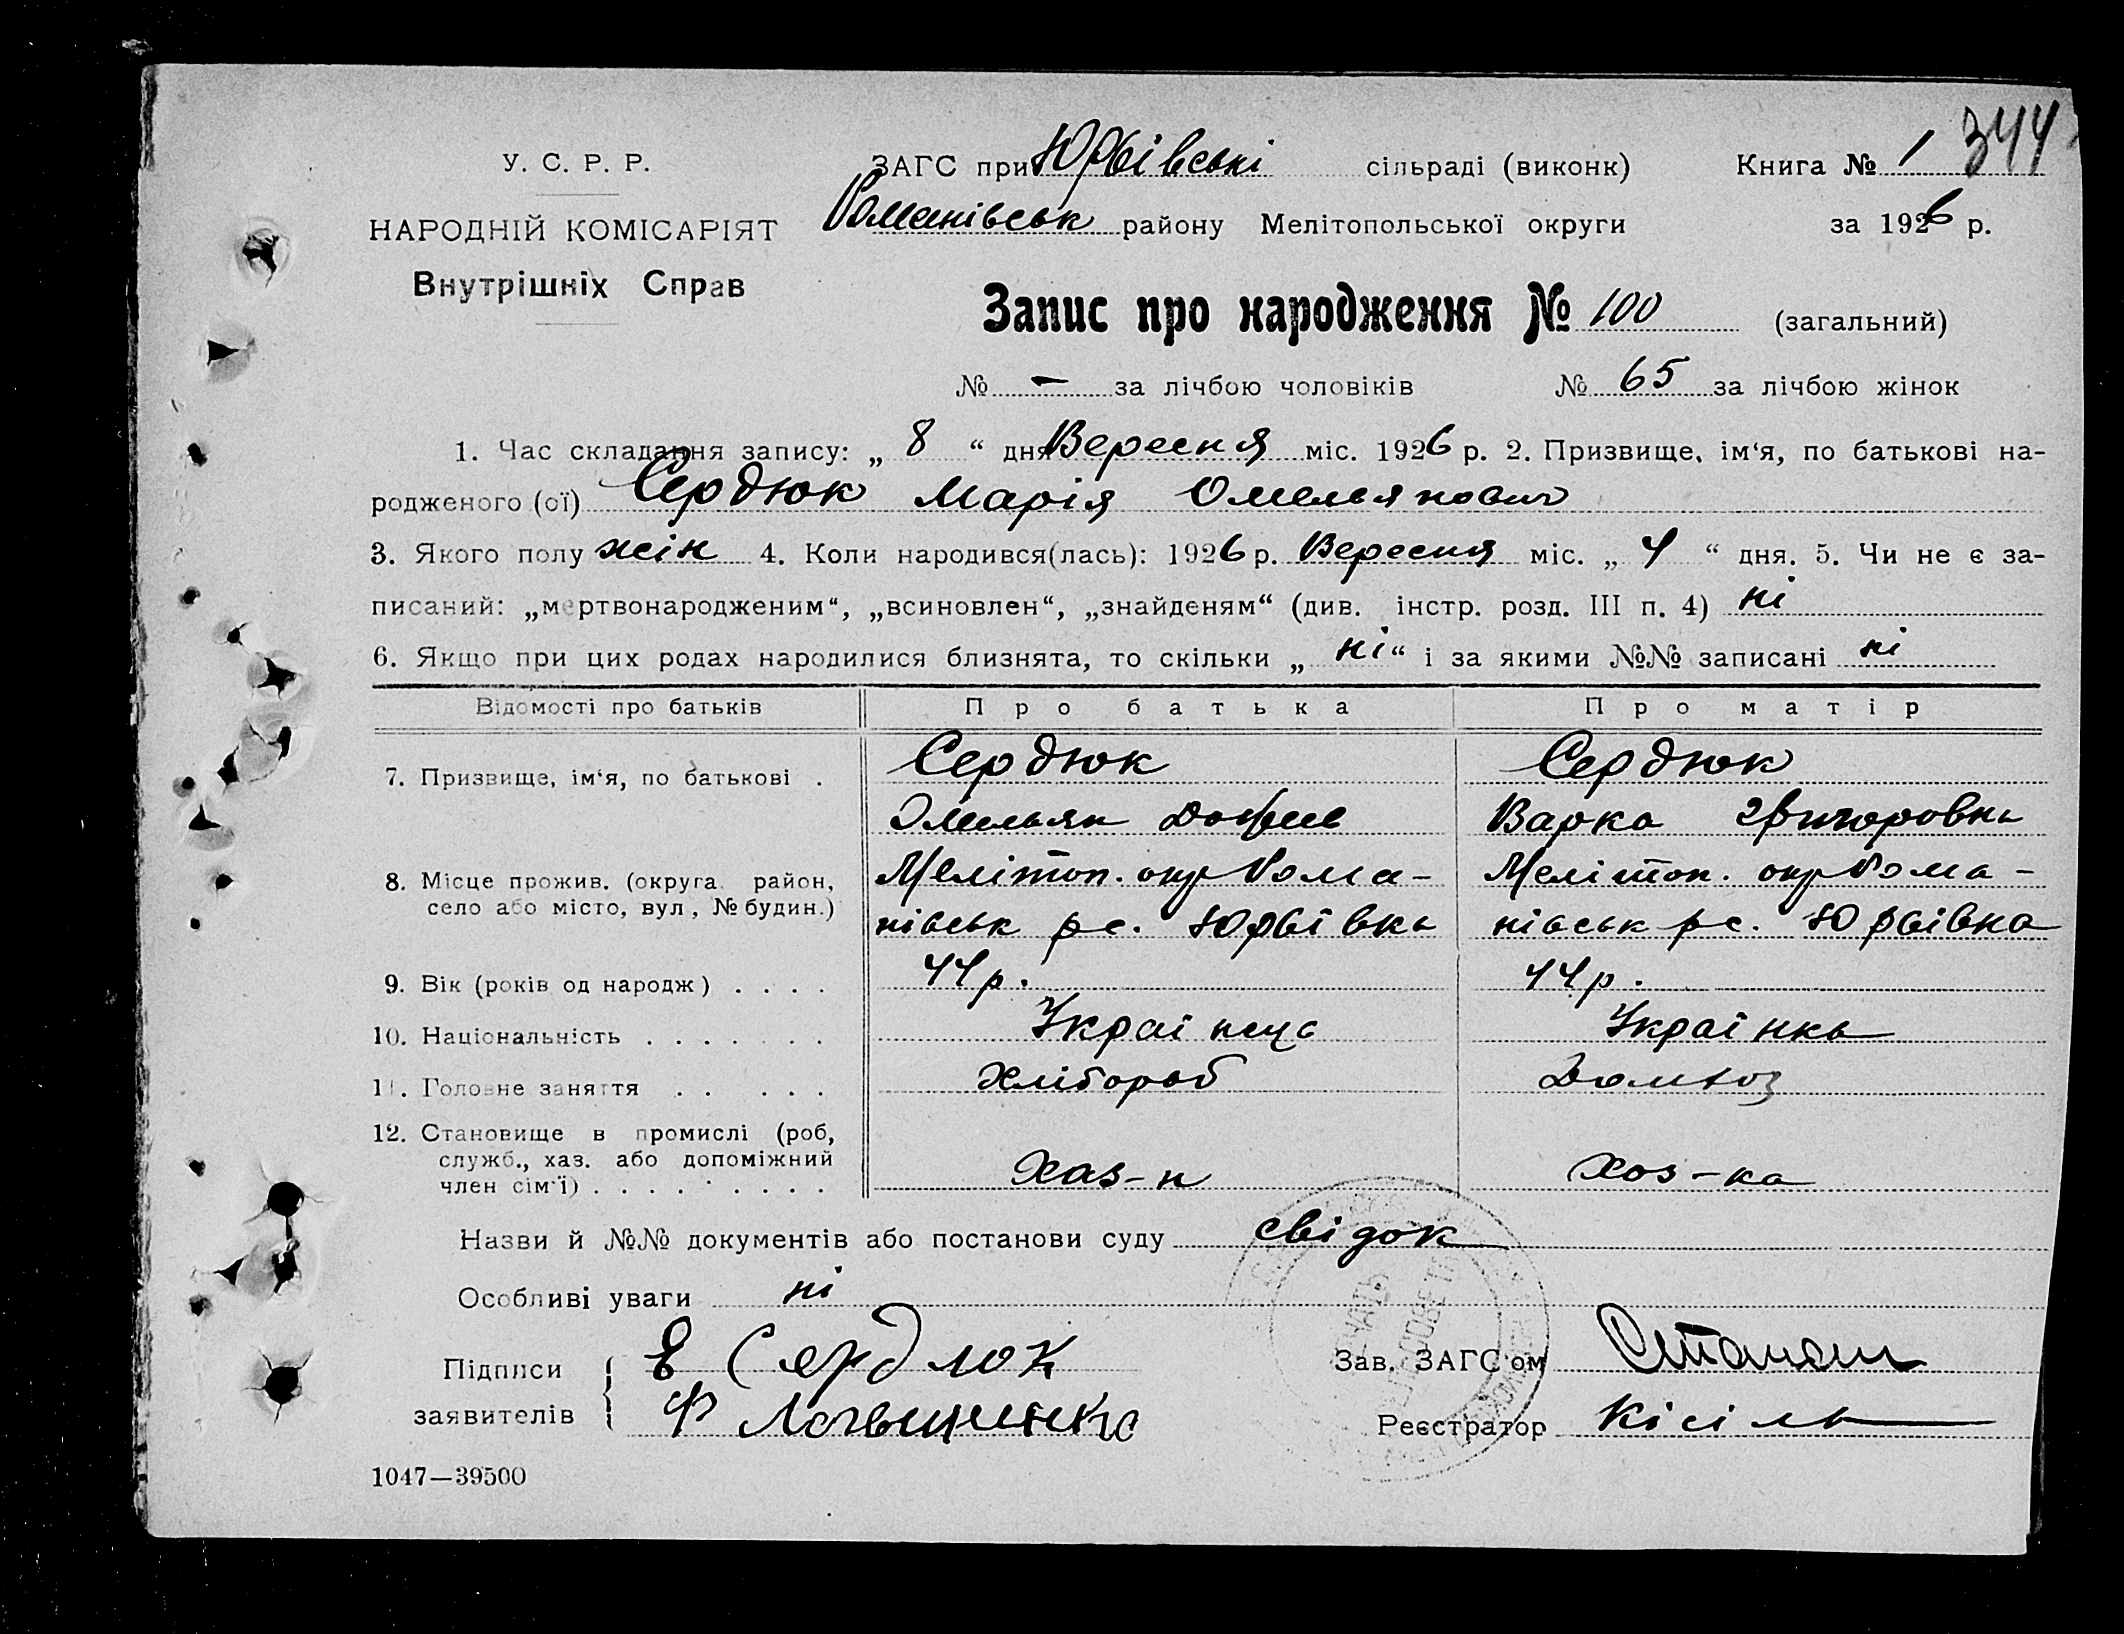 344
У. С. Р. Р. ЗАГС при Юрʼівські сільраді (виконк) Книга № 1
НАРОДНІЙ КОМІСАРІЯТ Романівськ району Мелітопольської округи за 1926 р.
Внутрішніх Справ
Запис про народження № 100 (загальний)
№ – за лічбою чоловіків № 65 за лічбою жінок
1. Час складання запису: „ 8 “ дня Вересня міс. 1926 р. 2. Призвище, ім‘я, по батькові на-
родженого (ої) Сердюк Марія Омельянович
3. Якого полу жін 4. Коли народився(лась): 1926 р. Вересня міс. „ 4 “ дня. 5. Чи не є за-
писаний: „мертвонародженим“, „всиновлен“, „знайденям“ (див. інстр. розд. III п. 4) ні
6. Якщо при цих родах народилися близнята, то скільки „ ні “ і за якими №№ записані ні
Відомості про батьків Про батька Про матір
7. Призвище, ім‘я, по батькові . Сердюк Сердюк
Омельян Варка Григоровна
8. Місце прожив. (округа район, Мелітоп. окр Рома- Мелітоп. окр Рома-
село або місто, вул, № будин.) нівськ рс. Юрʼівка нівськ рс. Юрʼівка
9. Вік (років од народж) . . . . 44 р. 44 р.
10. Національність . . . . . . . Українець Українка
11. Головне заняття . . . . . Хлібороб Домхоз
12. Становище в промислі (роб,
служб., хаз. або допоміжний
член сім'ї) . . . . . . . . . Хаз-н Хоз-ка
Назви й №№ документів або постанови суду свідок
Особливі уваги ні
Підписи Е Сердюк Зав. ЗАГС'ом
заявителів Ф Логвиненко Реєстратор Кісіль
1047—39500